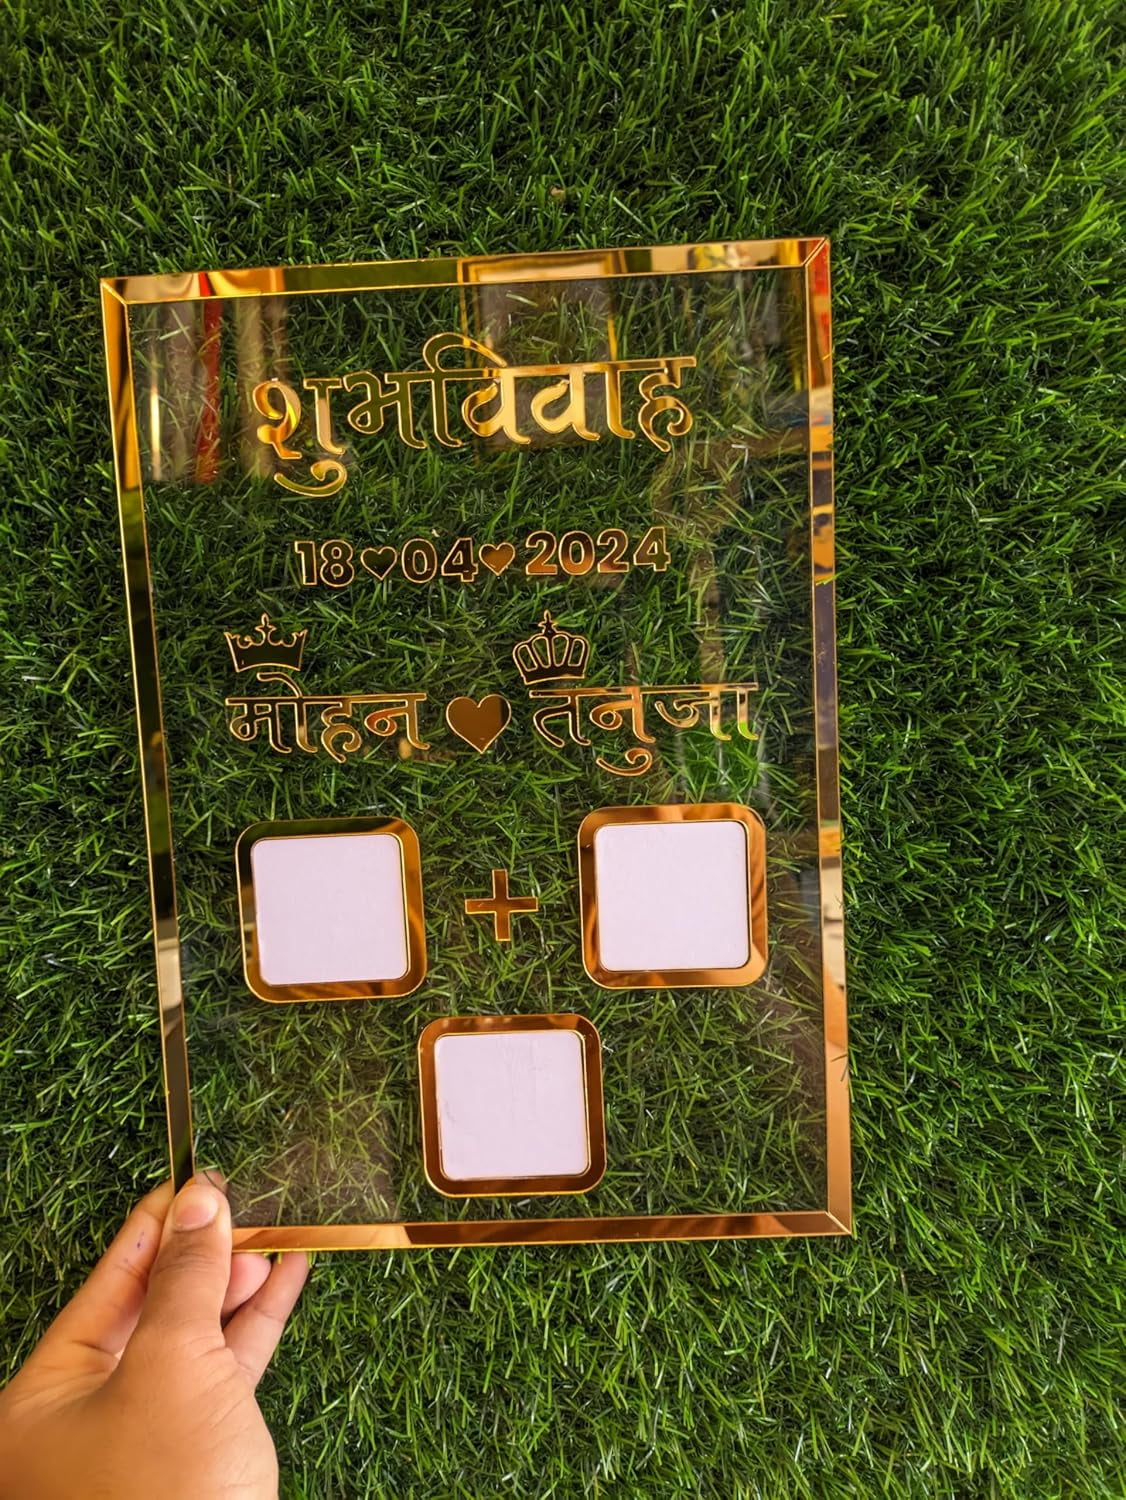 शुभविवाह
18♥04♥2024
मोहन ♥ तनुजा
+